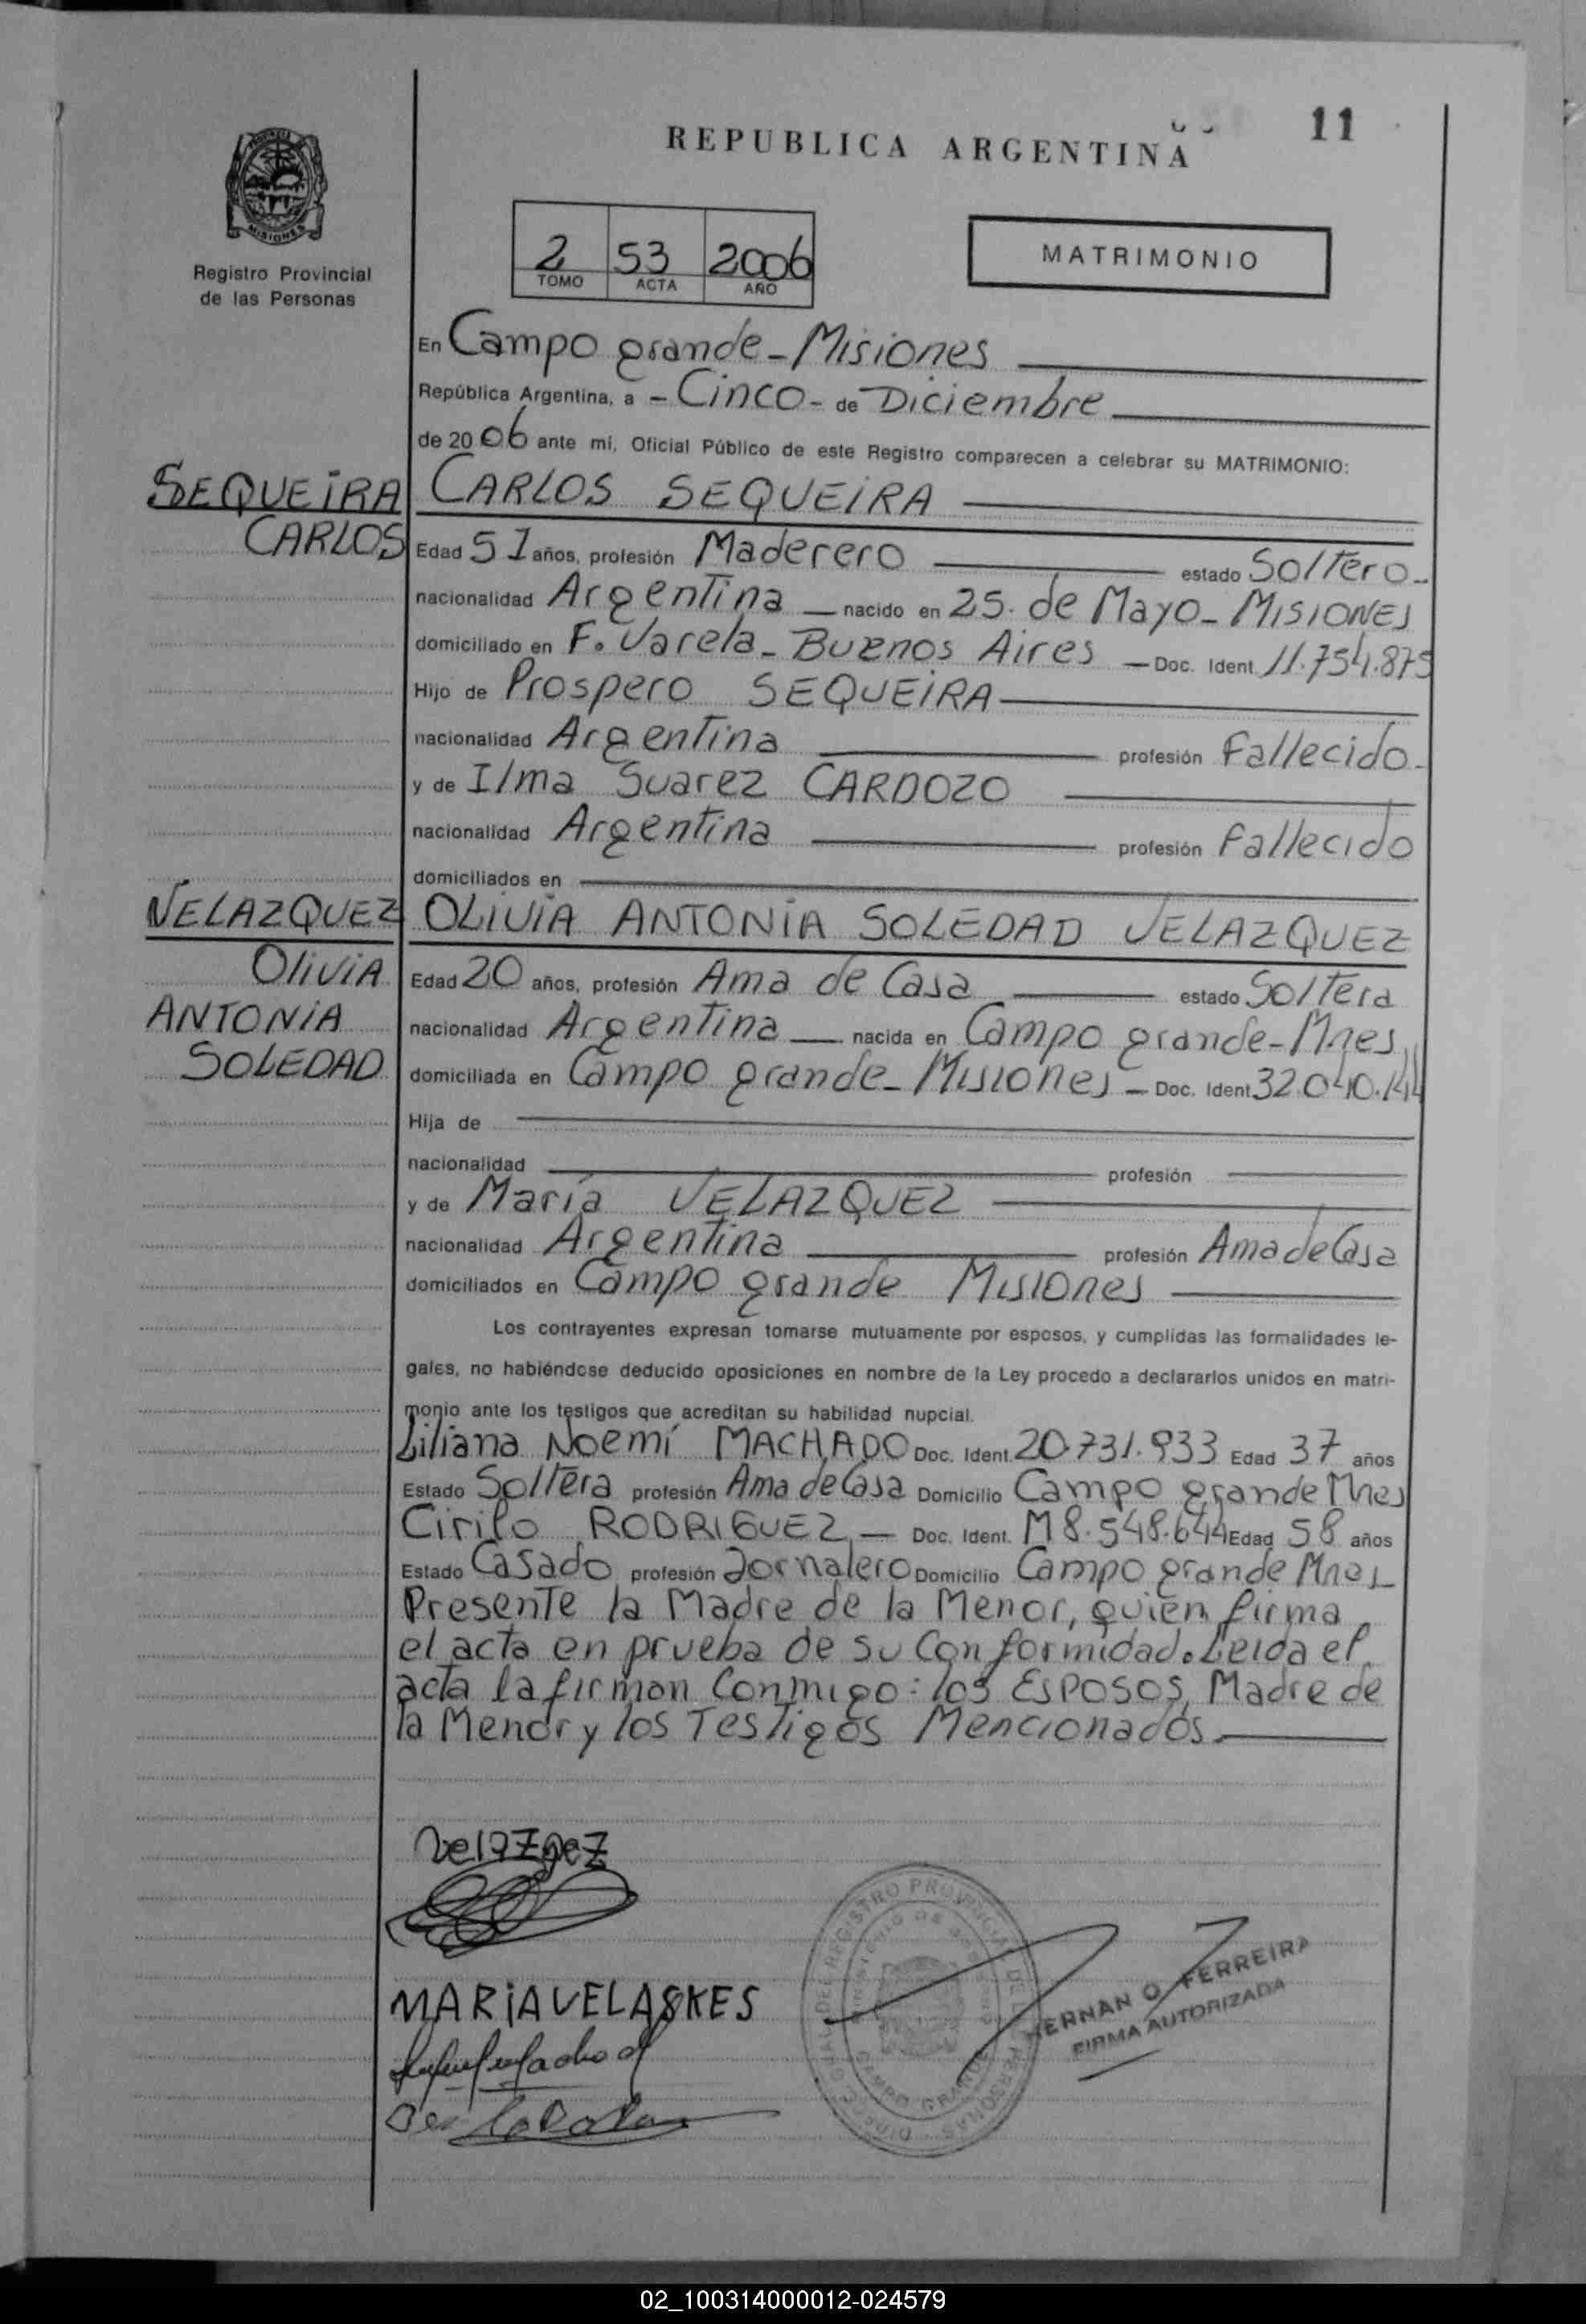 REPUBLICA ARGENTINA
11
MISIONES
Registro Provincial
de las Personas
2 53 2006
TOMO ACTA AÑO
MATRIMONIO
En Campo grande - Misiones
República Argentina, a - Cinco - de Diciembre
de 2006 ante mí, Oficial Público de este Registro comparecen a celebrar su MATRIMONIO:
SEQUEIRA CARLOS SEQUEIRA
CARLOS Edad 51 años, profesión Maderero estado Soltero -
nacionalidad Argentina - nacido en 25. de Mayo - MISIONES
domiciliado en F. Varela - Buenos Aires - Doc. Ident. 11.754.875
Hijo de Prospero SEQUEIRA
nacionalidad Argentina profesión Fallecido -
y de Ilma Suarez CARDOZO
nacionalidad Argentina profesión Fallecido
domiciliados en
VELAZQUEZ OLIVIA ANTONIA SOLEDAD VELAZQUEZ
OliviA Edad 20 años, profesión Ama de Casa estado Soltera
ANTONIA nacionalidad Argentina - nacida en Campo grande - Mnes
SOLEDAD domiciliada en Campo grande - Misiones - Doc. Ident. 32.040.144
Hija de
nacionalidad profesión
y de María VELAZQUEZ
nacionalidad Argentina profesión Ama de Casa
domiciliados en Campo grande Misiones
Los contrayentes expresan tomarse mutuamente por esposos, y cumplidas las formalidades le-
gales, no habiéndose deducido oposiciones en nombre de la Ley procedo a declararlos unidos en matri-
monio ante los testigos que acreditan su habilidad nupcial.
Liliana Noemí MACHADO Doc. Ident. 20.731.933 Edad 37 años
Estado Soltera profesión Ama de Casa Domicilio Campo grande Mnes
Cirilo RODRIGUEZ - Doc. Ident. M8.548.644 Edad 58 años
Estado Casado profesión Jornalero Domicilio Campo grande Mnes
Presente la Madre de la Menor, quien firma
el acta en prueba de su Conformidad. Leida el
acta la firman Conmigo: los Esposos, Madre de
la Menor y los Testigos Mencionados.
MARiAVELASKES
HERNAN O. FERREIRA
FIRMA AUTORIZADA
02_100314000012-024579